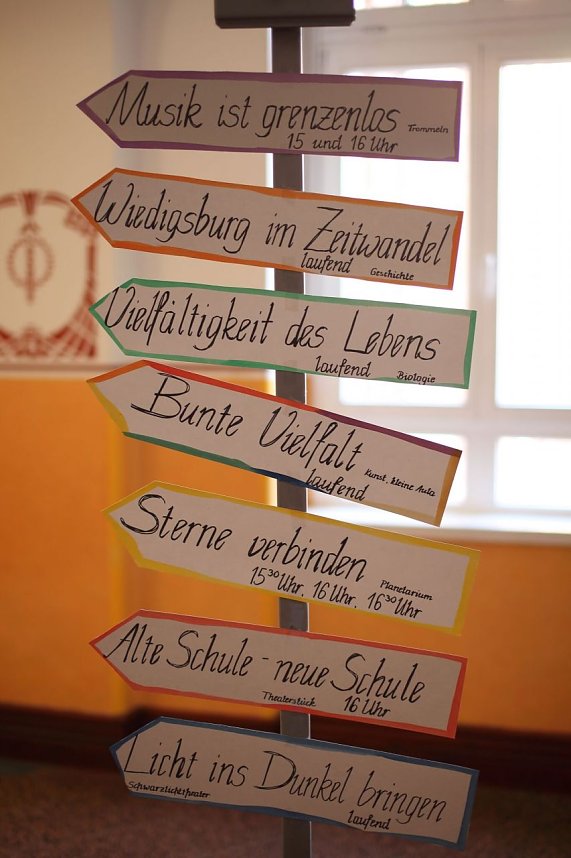 Musik ist grenzenlos Trommeln
15 und 16 Uhr
Wiedigsburg im Zeitwandel
laufend Geschichte
Vielfältigkeit des Lebens
laufend Biologie
Bunte Vielfalt Kunst, kleine Aula
laufend
Sterne verbinden Planetarium
15³⁰Uhr. 16 Uhr. 16³⁰Uhr
Alte Schule - neue Schule
Theaterstück 16 Uhr
Licht ins Dunkel bringen
Schwarzlichttheater laufend